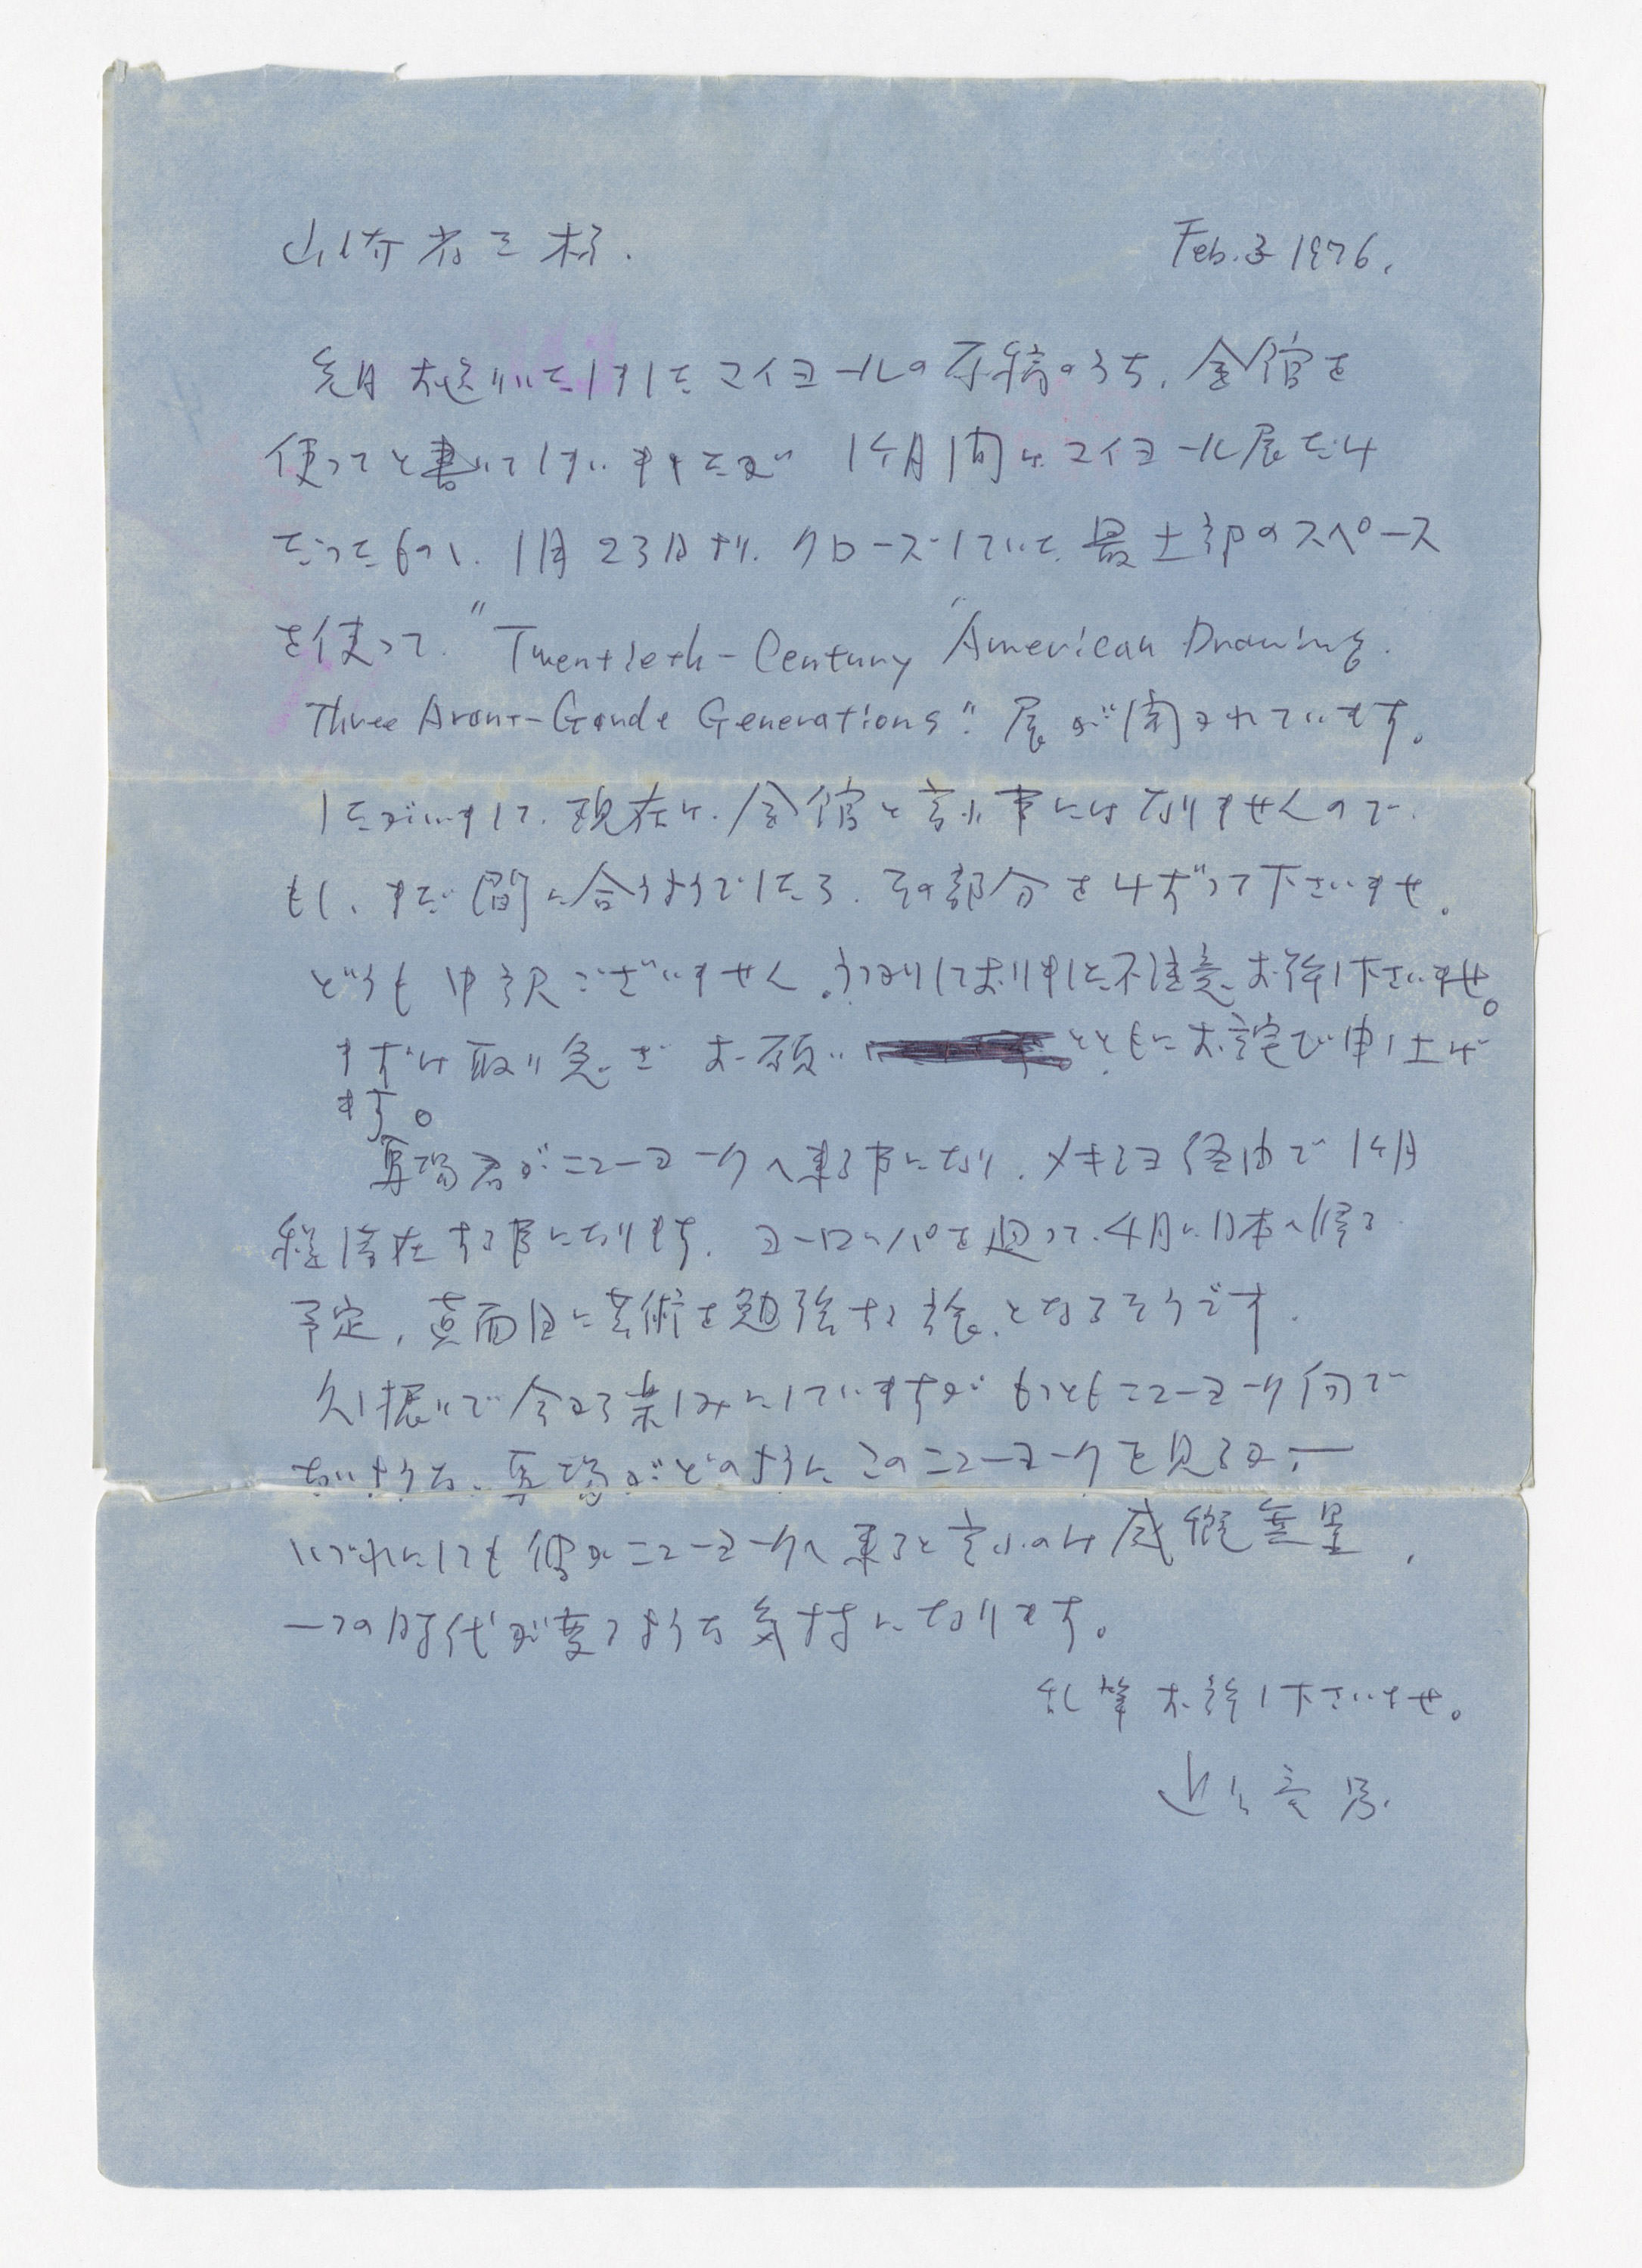 山崎省三様.
Feb. 3 1976.
先日お送りいたしましたマイヨールの原稿のうち、全館を
使ってと書いてしまいましたが 1ヶ月間はマイヨール展だけ
だったもの、1月23日より、クローズしていた最上部のスペース
を使って、"Twentieth-Century American Drawing.
Three Avant-Garde Generations" 展が開かれています。
したがいまして、現在は、全館と言ふ事にはなりませんので、
もし、まだ間に合うようでしたら、その部分をけずって下さいませ。
どうも申訳ございません。うっかりしておりました不注意お許し下さいませ。
まずは取り急ぎお願い とともにお詫び申し上げ
ます。
馬場君がニューヨークへ来る事になり、メキシコ経由で1ヶ月
程滞在する事になります。ヨーロッパを廻って、4月に日本へ帰る
予定、真面目に芸術を勉強する旅、となるそうです。
久し振りで今から楽しみにしていますが もっともニューヨーク何で
馬場がどのようにこのニューヨークを見るか、―
いづれにしても彼がニューヨークへ来ると言ふのは感慨無量、
一つの時代が変るような気持になります。
乱筆お許し下さいませ。